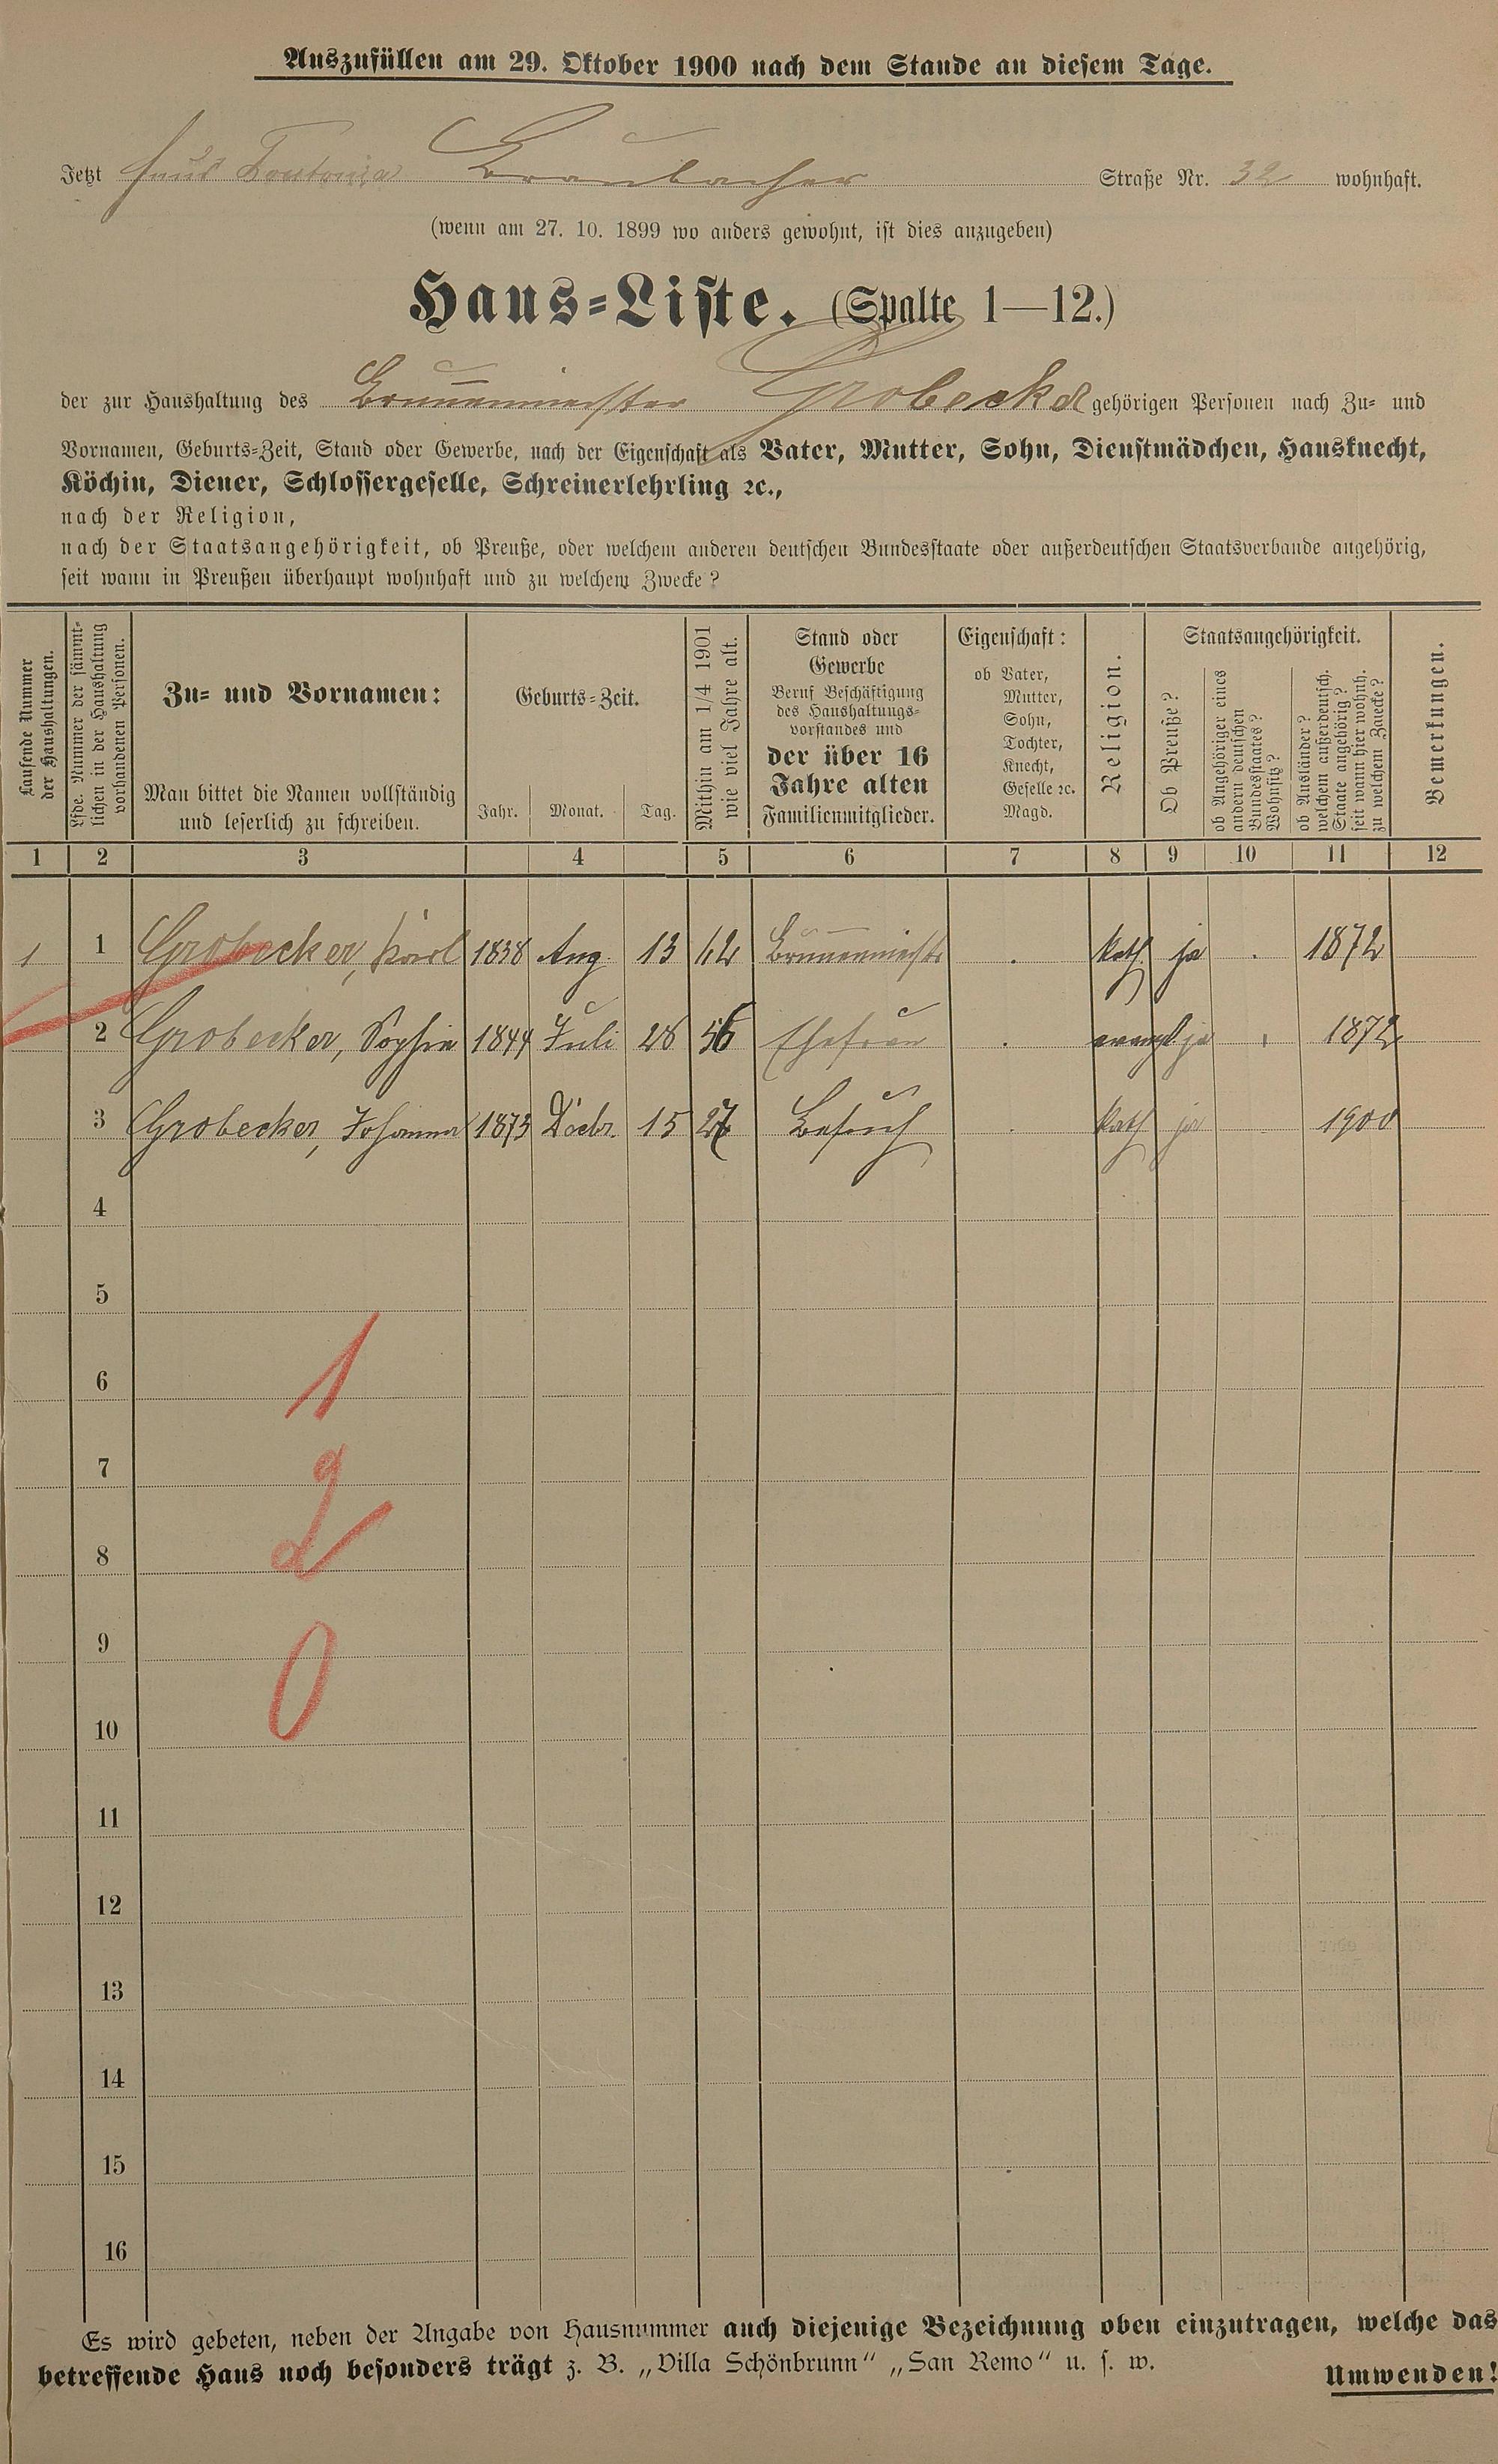 Auszufüllen am 29. Oktober 1900 nach dem Stande an diesem Tage.
Jetzt Haus Teutonia Braubacher Straße Nr. 32 wohnhaft.
(wenn am 27. 10. 1899 wo anders gewohnt, ist dies anzugeben)
Haus=Liste. (Spalte 1—12.)
der zur Haushaltung des Brunnenmeister Grobecker gehörigen Personen nach Zu= und
Vornamen, Geburts=Zeit, Stand oder Gewerbe, nach der Eigenschaft als Vater, Mutter, Sohn, Dienstmädchen, Hausknecht,
Köchin, Diener, Schlossergeselle, Schreinerlehrling ꝛc.,
nach der Religion,
nach der Staatsangehörigkeit, ob Preuße, oder welchem anderen deutschen Bundesstaate oder außerdeutschen Staatsverbande angehörig,
seit wann in Preußen überhaupt wohnhaft und zu welchem Zwecke?
Laufende Nummer
der Haushaltungen.
Lfde. Nummer der sämmt-
lichen in der Haushaltung
vorhandenen Personen.
Zu= und Vornamen:
Man bittet die Namen vollständig
und leserlich zu schreiben.
Geburts=Zeit.
Jahr. Monat. Tag.
Mithin am 1/4 1901
wie viel Jahre alt.
Stand oder
Gewerbe
Beruf Beschäftigung
des Haushaltungs=
vorstandes und
der über 16
Jahre alten
Familienmitglieder.
Eigenschaft:
ob Vater,
Mutter,
Sohn,
Tochter,
Knecht,
Geselle ꝛc.
Magd.
Religion.
Staatsangehörigkeit.
Ob Preuße?
ob Angehöriger eines
andern deutschen
Bundesstaates?
Wohnsitz?
ob Ausländer?
welchem außerdeutsch.
Staate angehörig?
seit wann hier wohnh.
zu welchem Zwecke?
Bemerkungen.
1 2 3 4 5 6 7 8 9 10 11 12
1 1 Grobecker, Karl 1838 Aug. 13 62 Brunnenmeister . Kath ja . 1872
2 Grobecker, Sophie 1844 Juli 28 56 Ehefrau . evangl. ja 1872
3 Grobecker, Johanna 1873 Decbr. 15 27 Besuch . Kath ja 1900
4
5
6
1
7
2
8
9
0
10
11
12
13
14
15
16
Es wird gebeten, neben der Angabe von Hausnummer auch diejenige Bezeichnung oben einzutragen, welche das
betreffende Haus noch besonders trägt z. B. „Villa Schönbrunn“ „San Remo“ u. s. w.
Umwenden!